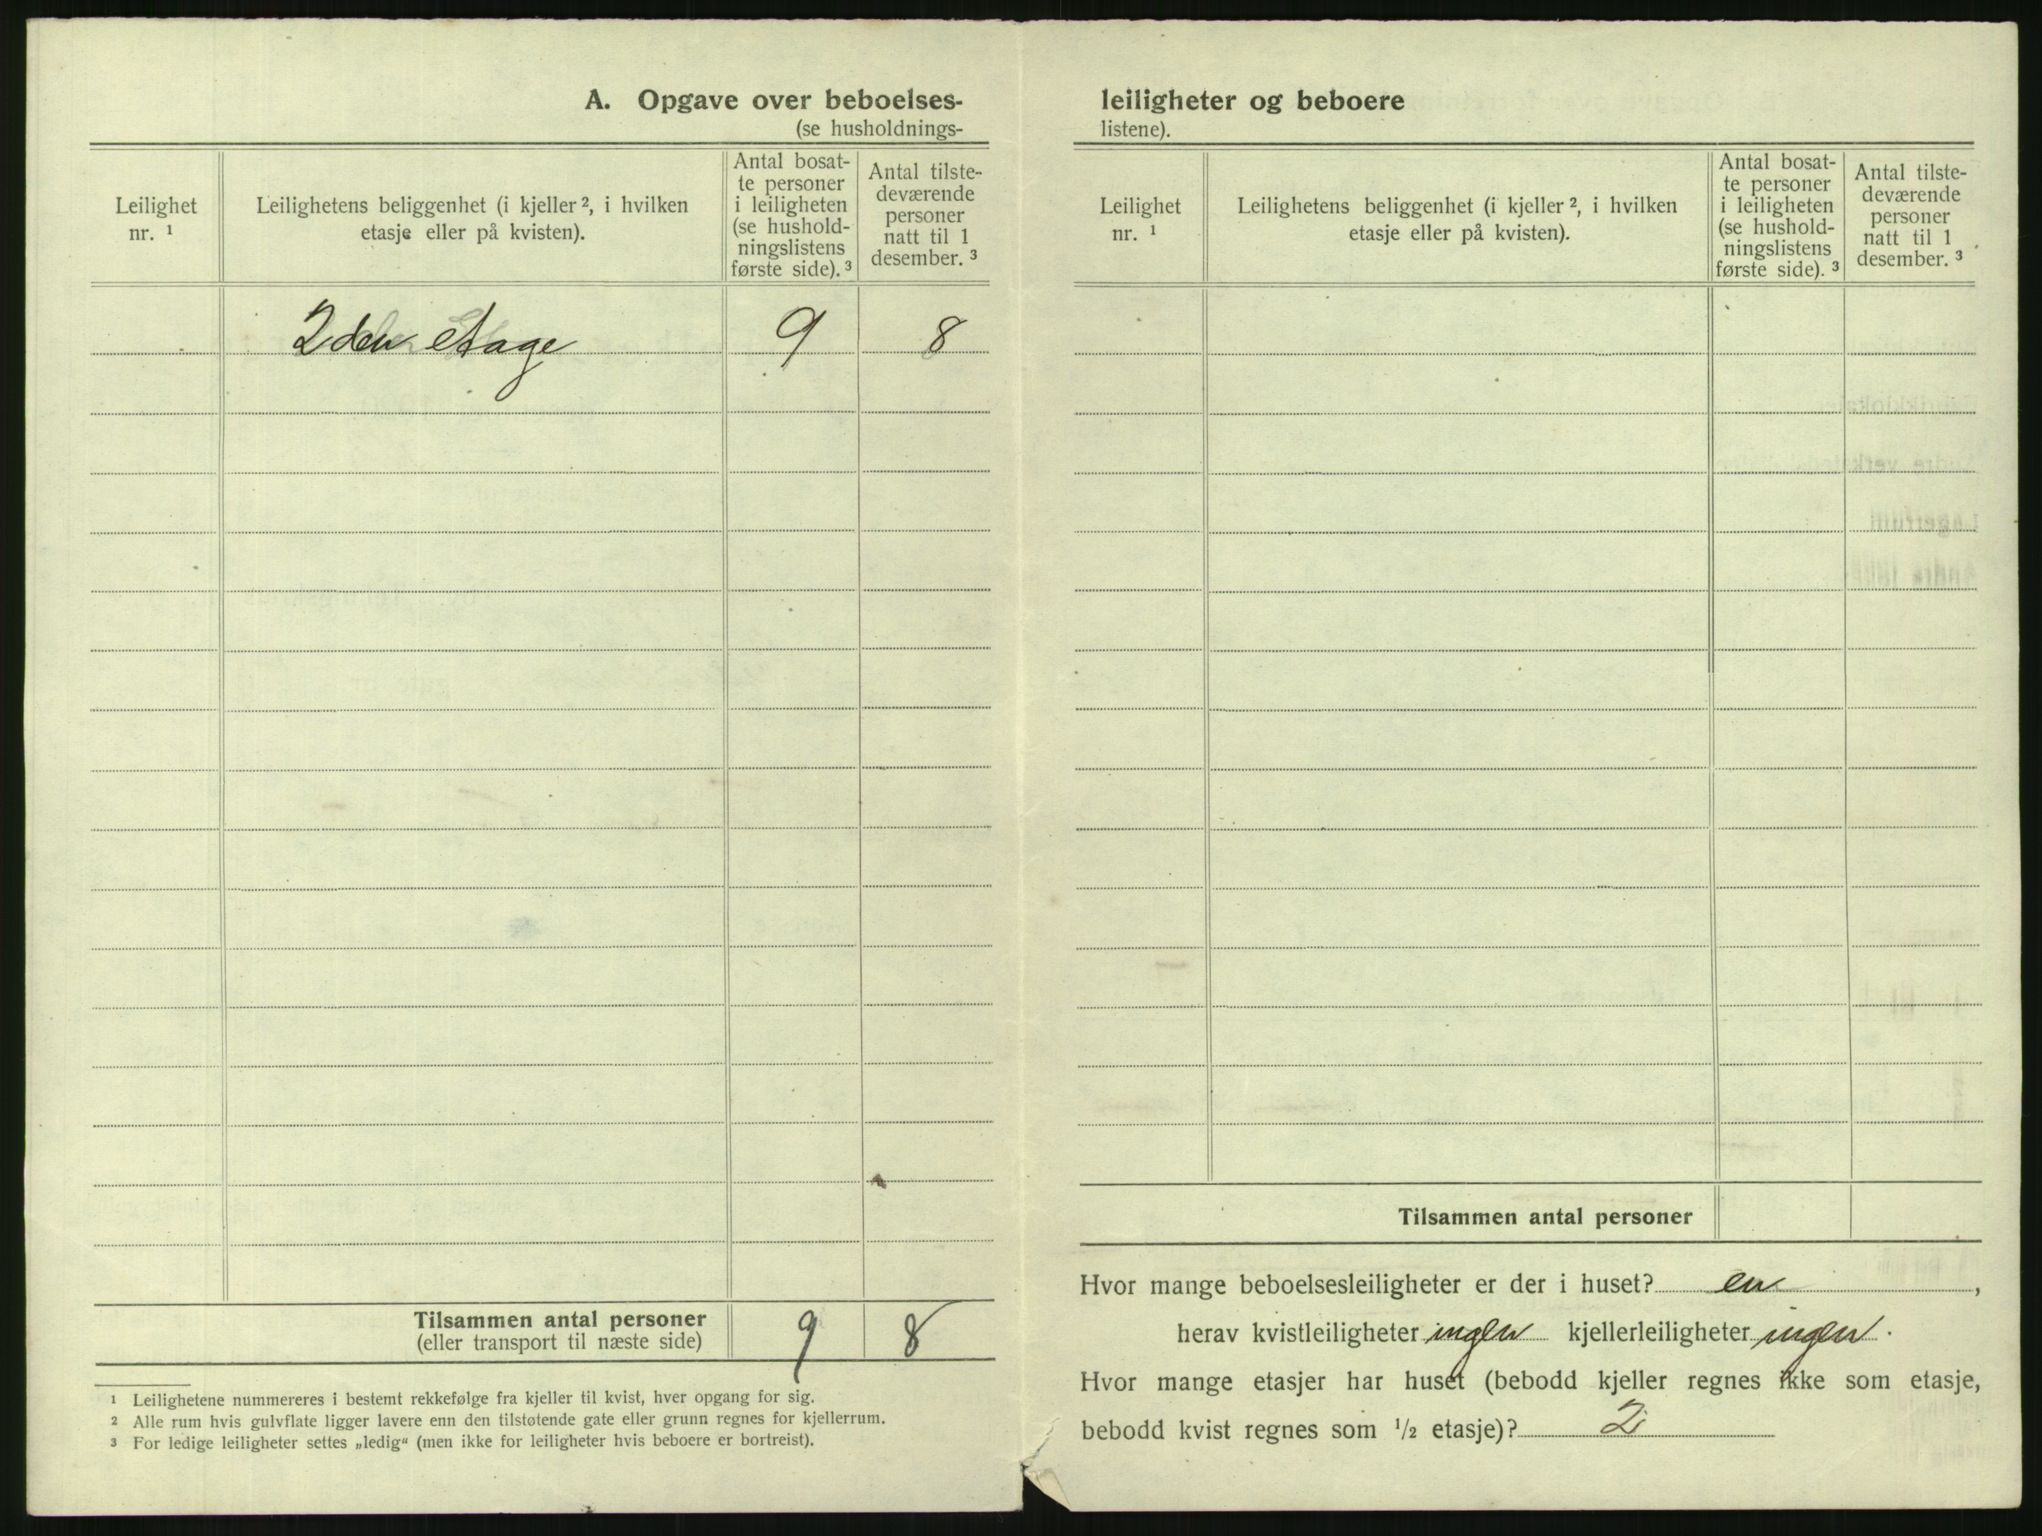 A. Opgave over beboelses-
(se husholdnings-
Leilighet
nr. ¹
Leilighetens beliggenhet (i kjeller ², i hvilken
etasje eller på kvisten).
Antal bosat-
te personer
i leiligheten
(se hushold-
ningslistens
første side). ³
Antal tilste-
deværende
personer
natt til 1
desember. ³
2den etage 9 8
Tilsammen antal personer
(eller transport til næste side)
9 8
¹ Leilighetene nummereres i bestemt rekkefølge fra kjeller til kvist, hver opgang for sig.
² Alle rum hvis gulvflate ligger lavere enn den tilstøtende gate eller grunn regnes for kjellerrum.
³ For ledige leiligheter settes „ledig“ (men ikke for leiligheter hvis beboere er bortreist).
leiligheter og beboere
listene).
Leilighet
nr. ¹
Leilighetens beliggenhet (i kjeller ², i hvilken
etasje eller på kvisten).
Antal bosat-
te personer
i leiligheten
(se hushold-
ningslistens
første side). ³
Antal tilste-
deværende
personer
natt til 1
desember. ³
Tilsammen antal personer
Hvor mange beboelsesleiligheter er der i huset? en ,
herav kvistleiligheter ingen kjellerleiligheter ingen .
Hvor mange etasjer har huset (bebodd kjeller regnes ikke som etasje,
bebodd kvist regnes som ½ etasje)? 2